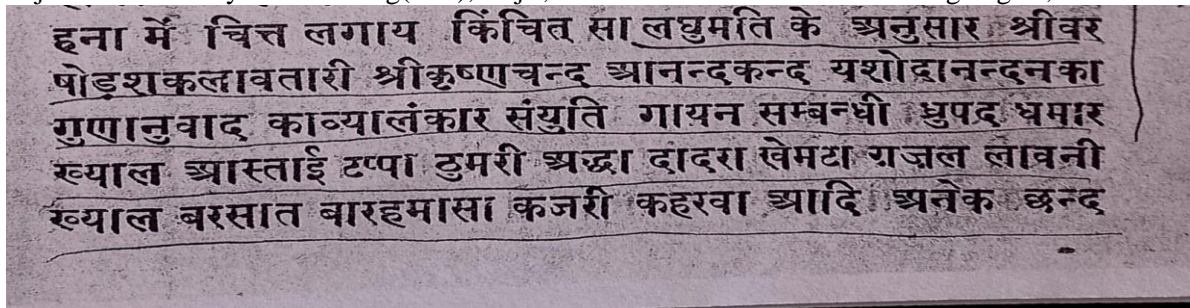 हना में चित्त लगाय किंचित सा लघुमति के अनुसार श्रीवर
षोड़शकलावतारी श्रीकृष्णचन्द आनन्दकन्द यशोदानन्दनका
गुणानुवाद काव्यालंकार संयुति गायन सम्बन्धी ध्रुपद धमार
ख्याल आस्ताई टप्पा ठुमरी अद्धा दादरा खेमटा ग़जल लावनी
ख्याल बरसात बारहमासा कजरी कहरवा आदि अनेक छन्द